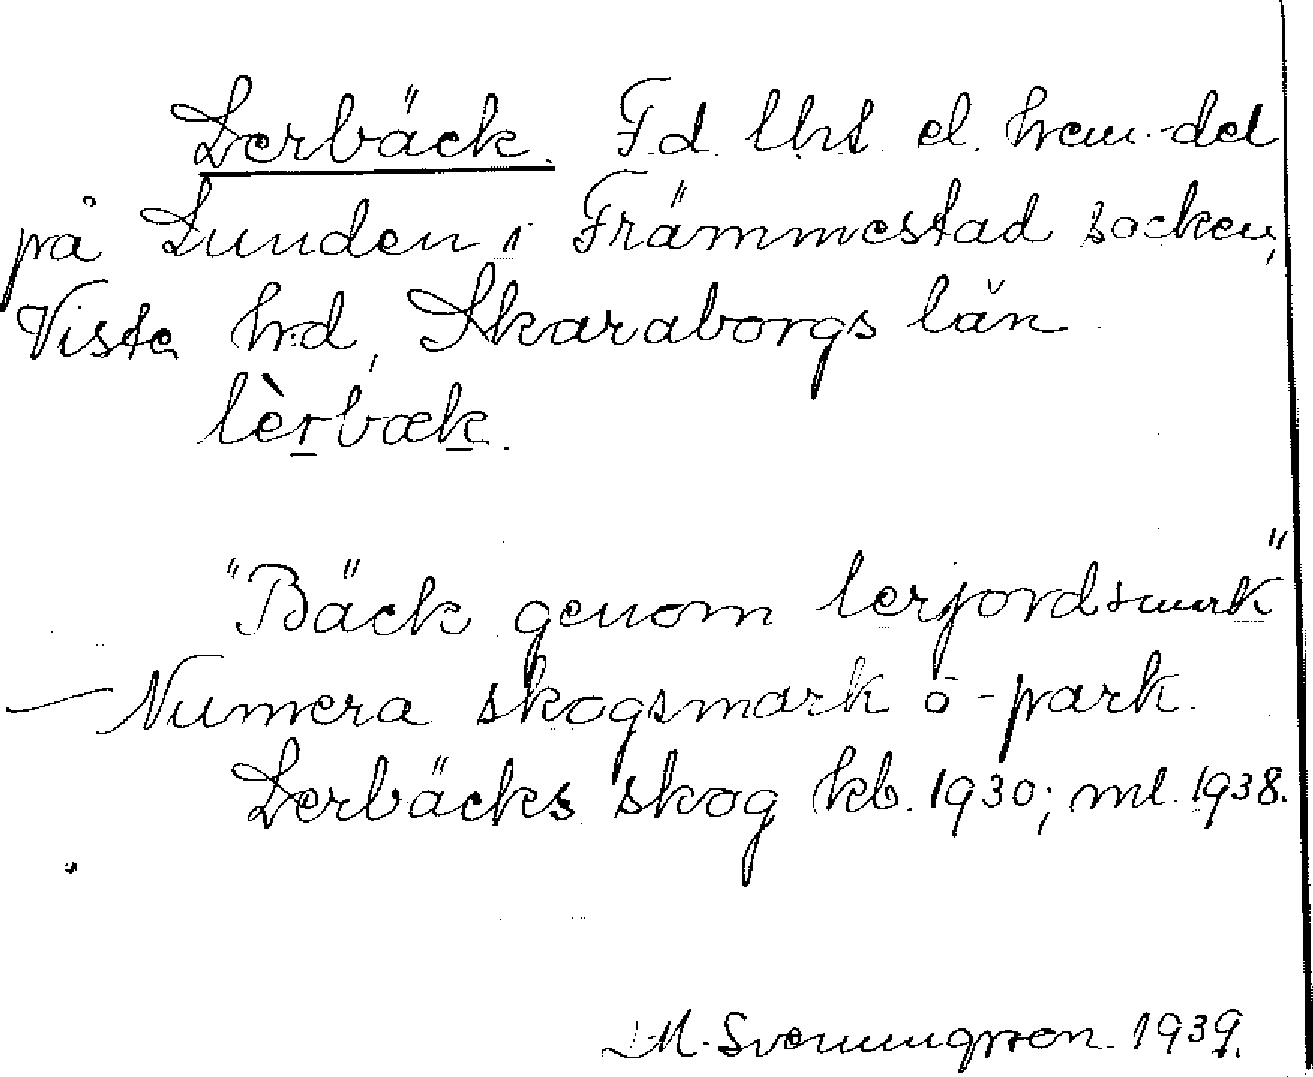 Lerbäck. F.d. lht. el. hem.del
på Lunden i Främmestad socken,
Viste hd, Skaraborgs län.
lèrbæk.
"Bäck genom lerjordsmark"
— Numera skogsmark o -park.
Lerbäcks skog kb. 1930; ml. 1938.
M. Svenungsson. 1939.